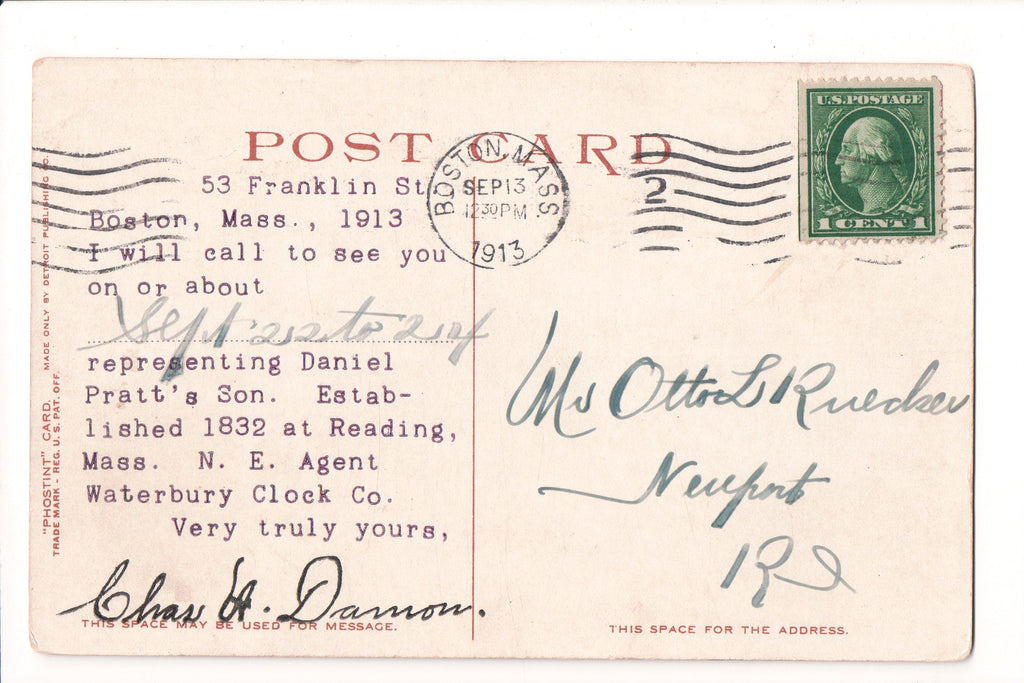 POST CARD
53 Franklin St
Boston, Mass., 1913
I will call to see you
on or about
Sept 22 to 24
representing Daniel
Pratt's Son. Estab-
lished 1832 at Reading,
Mass. N. E. Agent
Waterbury Clock Co.
Very truly yours,
Chas A. Damon.
THIS SPACE MAY BE USED FOR MESSAGE.
"PHOSTINT" CARD. MADE ONLY BY DETROIT PUBLISHING CO.
TRADE MARK - REG. U.S. PAT. OFF.
BOSTON, MASS
SEP 13
12 30 PM
1913
2
U.S. POSTAGE
1 CENT 1
Mr Otto L Ruecker
Newport
RI
THIS SPACE FOR THE ADDRESS.